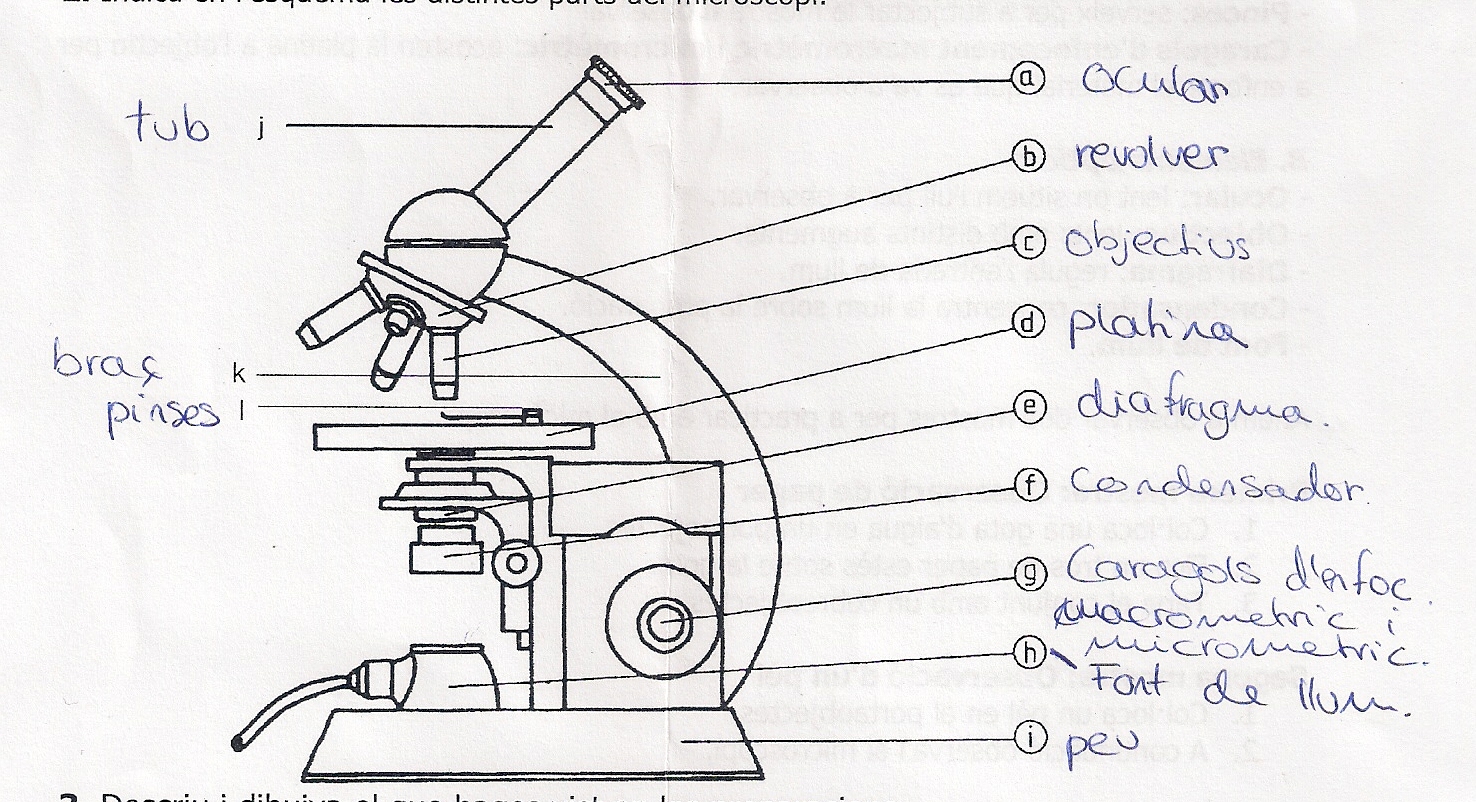 2. Indica en l'esquema les distintes parts del microscopi.
a ocular
tub j
b revolver
c objectius
d platina
braç k
pinses l
e diafragma.
f Condensador.
g Caragols d'enfoc.
macrometric i
micrometric.
h Font de llum.
i peu